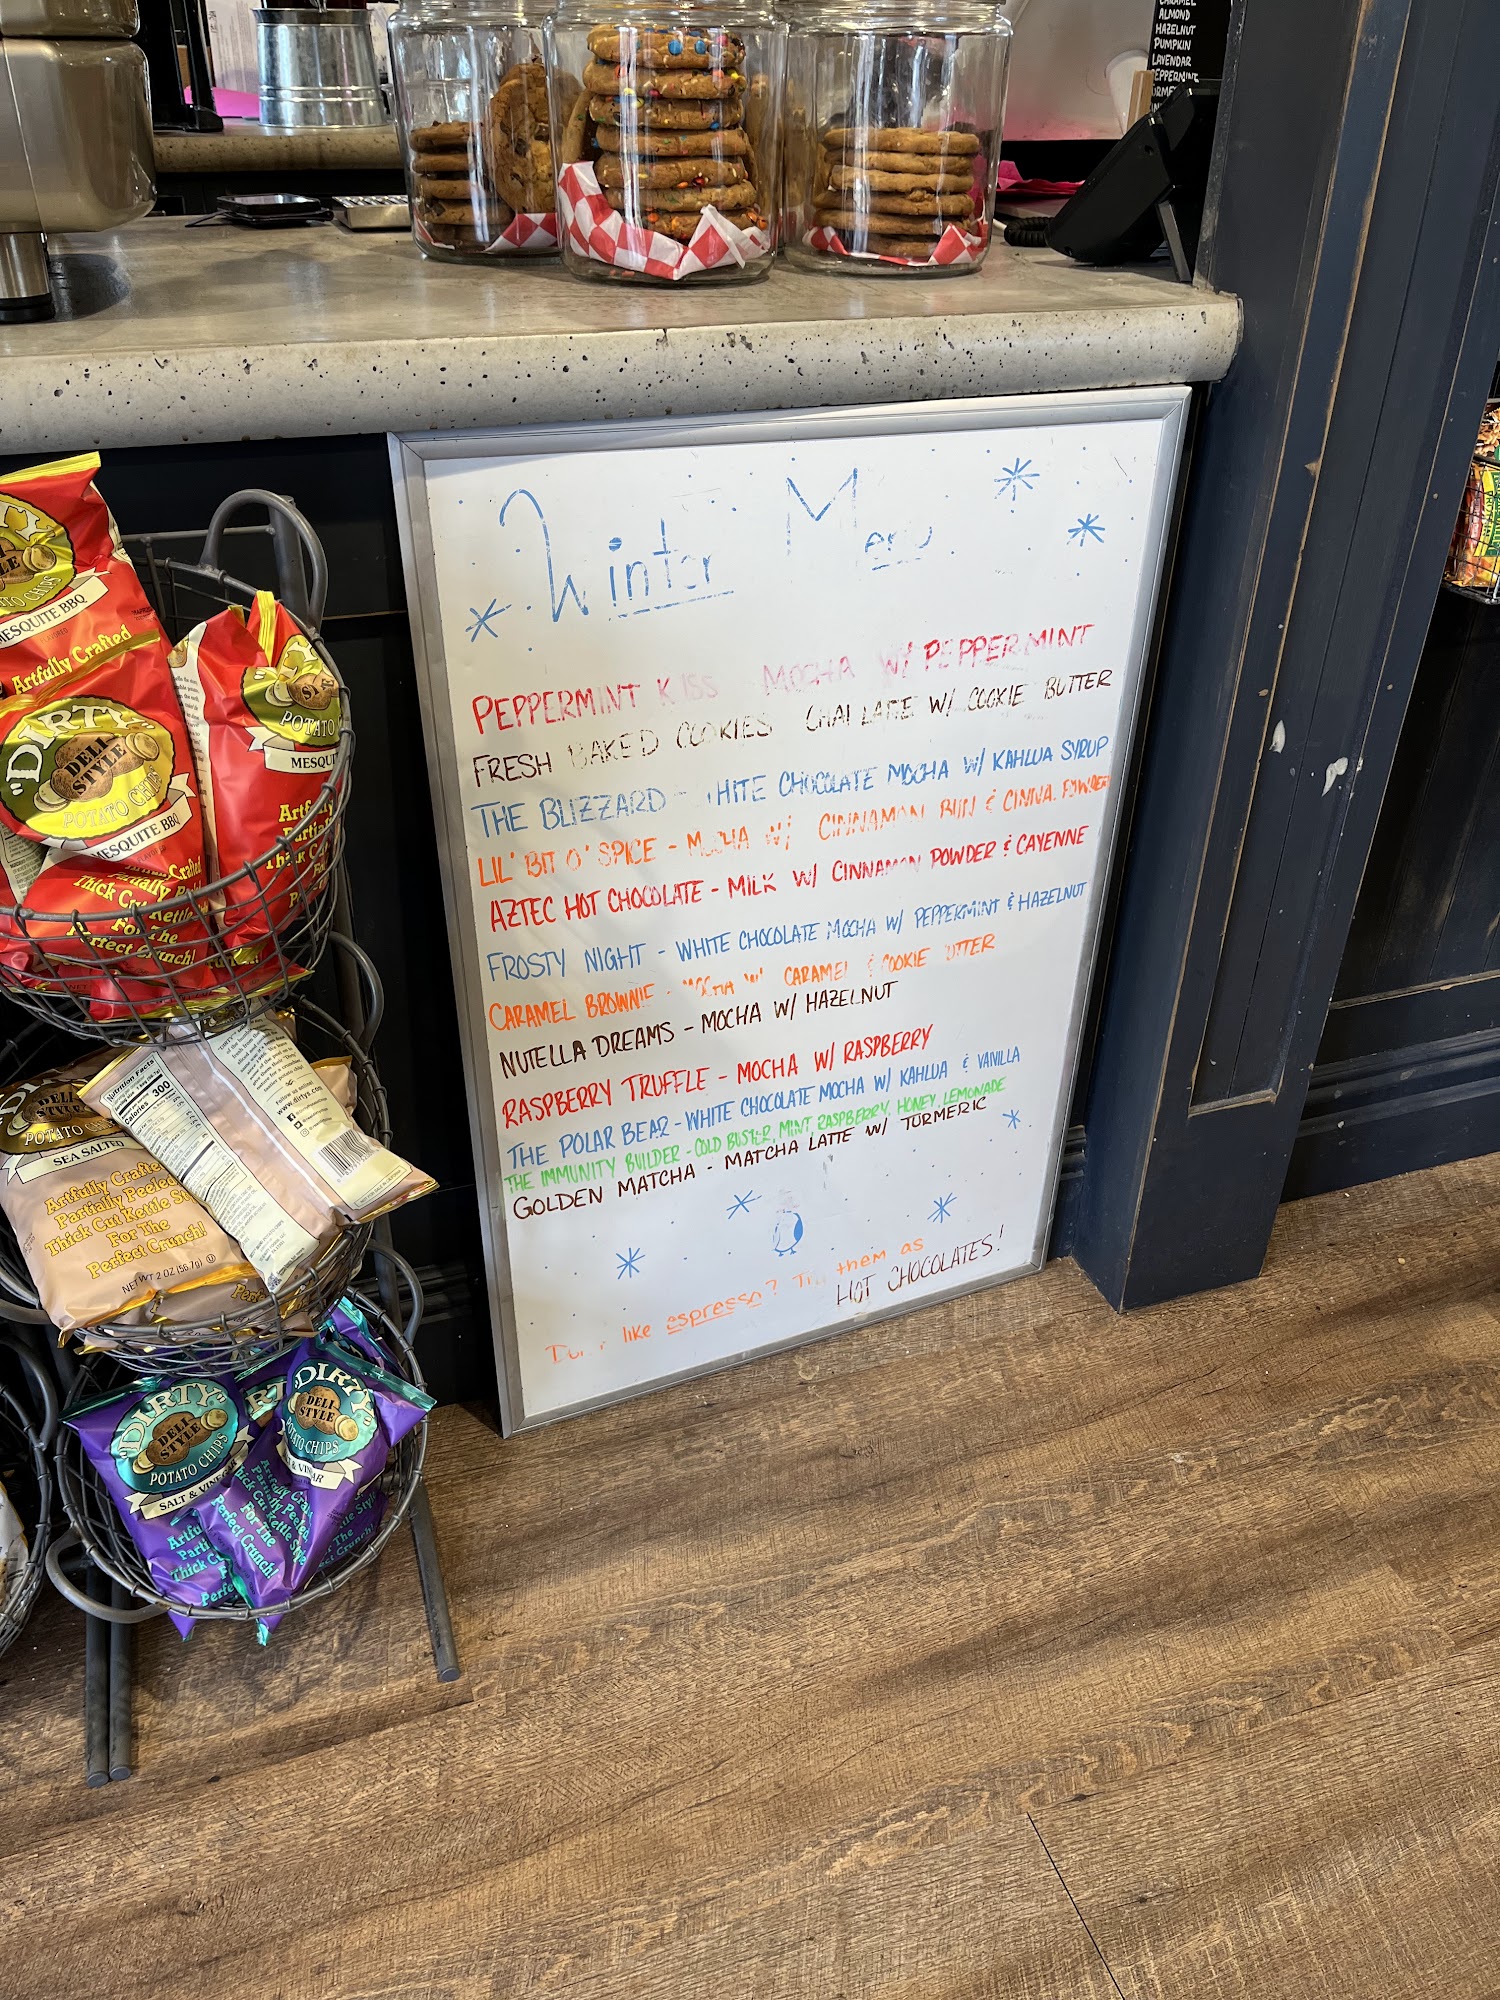 CARAMEL
ALMOND
HAZELNUT
PUMPKIN
LAVENDAR
PEPPERMINT
Winter Menu
PEPPERMINT KISS MOCHA W/ PEPPERMINT
FRESH BAKED COOKIES CHAI LATTE W/ COOKIE BUTTER
THE BLIZZARD - WHITE CHOCOLATE MOCHA W/ KAHLUA SYRUP
LIL' BIT O' SPICE - MOCHA W/ CINNAMON BUN & CINNA. POWDER
AZTEC HOT CHOCOLATE - MILK W/ CINNAMON POWDER & CAYENNE
FROSTY NIGHT - WHITE CHOCOLATE MOCHA W/ PEPPERMINT & HAZELNUT
CARAMEL BROWNIE - MOCHA W/ CARAMEL & COOKIE BUTTER
NUTELLA DREAMS - MOCHA W/ HAZELNUT
RASPBERRY TRUFFLE - MOCHA W/ RASPBERRY
THE POLAR BEAR - WHITE CHOCOLATE MOCHA W/ KAHLUA & VANILLA
THE IMMUNITY BUILDER - COLD BUSTER, MINT, RASPBERRY, HONEY, LEMONADE
GOLDEN MATCHA - MATCHA LATTE W/ TURMERIC
Don't like espresso? Try them as
HOT CHOCOLATES!
POTATO CHIPS
MESQUITE BBQ
Artfully Crafted
"DIRTY"
DELI STYLE
POTATO CHIPS
MESQUITE BBQ
Thick Cut Kettle
For The
Perfect Crunch!
POTATO
MESQUI
DELI
POTATO CHIPS
SEA SALTED
Artfully Crafted
Partially Peeled
Thick Cut Kettle
For The
Perfect Crunch!
NET WT 2 OZ (56.7g)
Nutrition Facts
Calories 300
www.dirtys.com
"DIRTY"
DELI STYLE
POTATO CHIPS
SALT & VINEGAR
Thick Cut
"DIRTY"
DELI STYLE
POTATO CHIPS
Partially Peeled
Thick Cut Kettle Style
For The
Perfect Crunch!